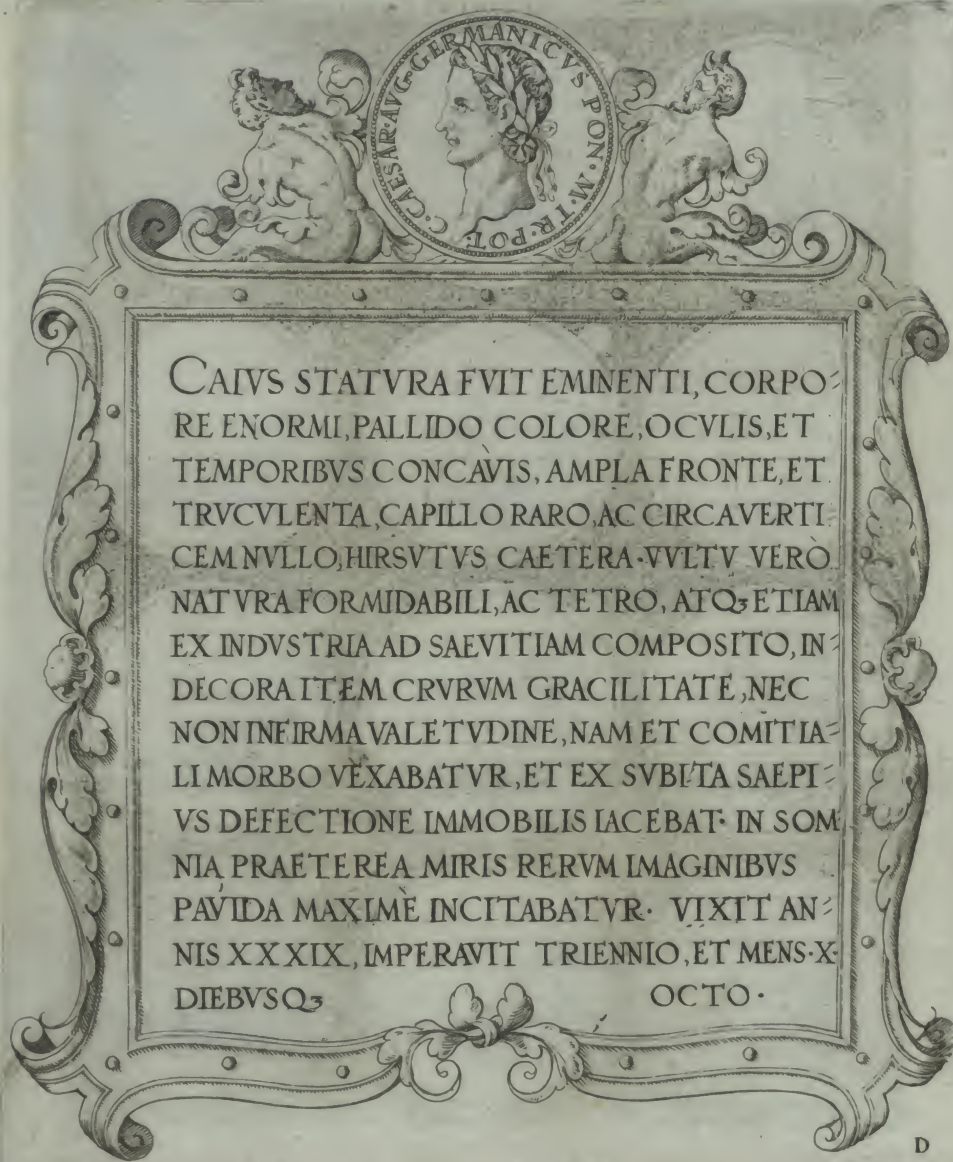 C·CAESAR·AVG·GERMANICVS PON·M·TR·POT·
CAIVS STATVRA FVIT EMINENTI, CORPO⸗
RE ENORMI, PALLIDO COLORE, OCVLIS, ET
TEMPORIBVS CONCAVIS, AMPLA FRONTE, ET
TRVCVLENTA, CAPILLO RARO, AC CIRCA VERTI
CEM NVLLO, HIRSVTVS CAETERA·VVLTV VERÒ
NATVRA FORMIDABILI, AC TETRO, ATQꝫ ETIAM
EX INDVSTRIA AD SAEVITIAM COMPOSITO, IN⸗
DECORA ITEM CRVRVM GRACILITATE, NEC
NON INFIRMA VALETVDINE, NAM ET COMITIA⸗
LI MORBO VEXABATVR, ET EX SVBITA SAEPI⸗
VS DEFECTIONE IMMOBILIS IACEBAT· IN SOM
NIA PRAETEREA MIRIS RERVM IMAGINIBVS
PAVIDA MAXIMÈ INCITABATVR· VIXIT AN⸗
NIS XXXIX, IMPERAVIT TRIENNIO, ET MENS·X·
DIEBVSQꝫ OCTO·
D